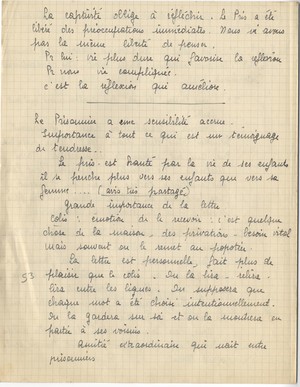 La captivité oblige à réfléchir. Le Pris a été
libéré des préoccupations immédiates. Nous n'avons
pas la même liberté de penser.
Pr lui vie plus dure qui favorise la réflexion
Pr nous vie compliquée.
c'est la réflexion qui améliore.
Le Prisonnier a une sensibilité accrue.
Importance à tout ce qui est un témoignage
de tendresse.
Le pris. est hanté par la vie de ses enfants
il se penche plus vers ses enfants que vers sa
femme.... (avis très partagé)
Grande importance de la lettre
Colis : émotion de le recevoir : c'est quelque
chose de la maison - des privations - besoin vital
mais souvent on le remet au popotier.
La lettre est personnelle, fait plus de
plaisir que le colis. On la lira - relira -
lira entre les lignes. On supposera que
chaque mot a été choisi intentionnellement.
On la gardera sur soi et on la montrera en
partie à ses voisins.
Amitié extraordinaire qui naît entre
prisonniers
53